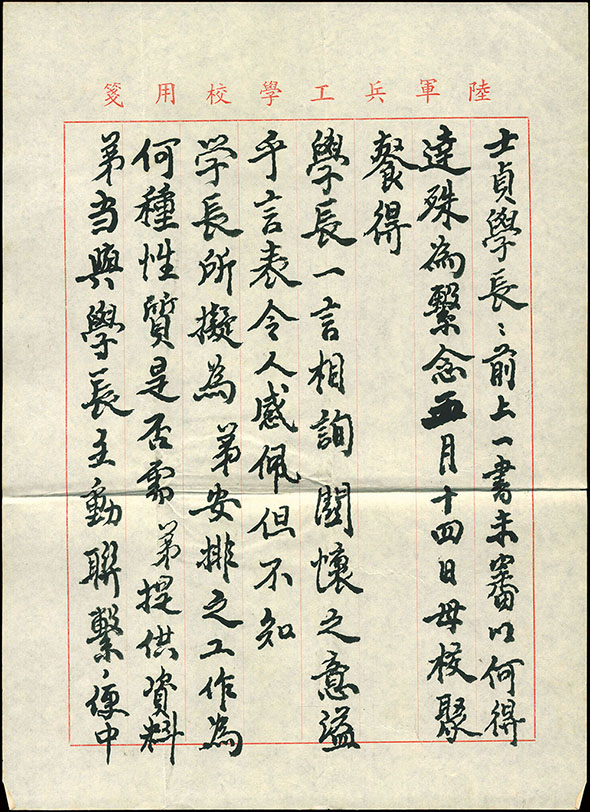 陸軍兵工學校用箋
士貞學長：前上一書未審以何得
達殊為繫念五月十四日母校聚
餐得
學長一言相詢関懷之意溢
乎言表令人感佩但不知
学長所擬為弟安排之工作為
何種性質是否需弟提供資料
弟当與學長主動聯繫，便中